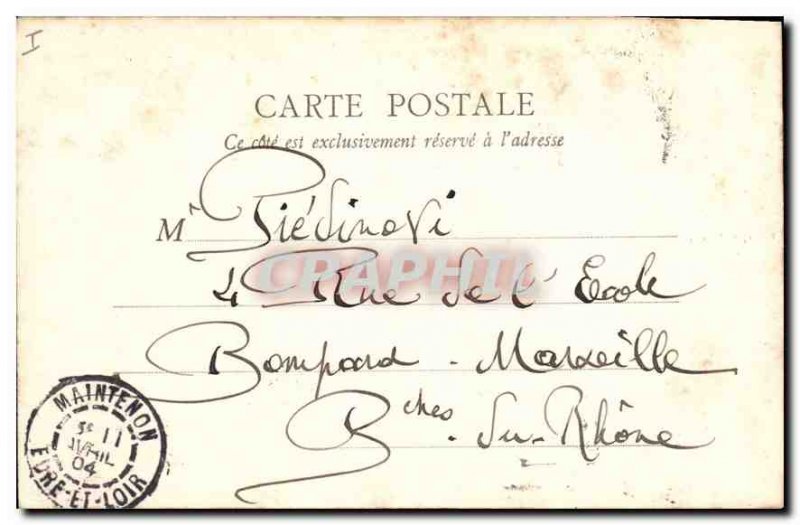 I
CARTE POSTALE
Ce côté est exclusivement réservé à l'adresse
Mr Piédinovi
4 Rue de l'Ecole
Bompard - Marseille
Bches du-Rhône
CPAPHIL
MAINTENON
11
AVRIL
04
EURE-ET-LOIR